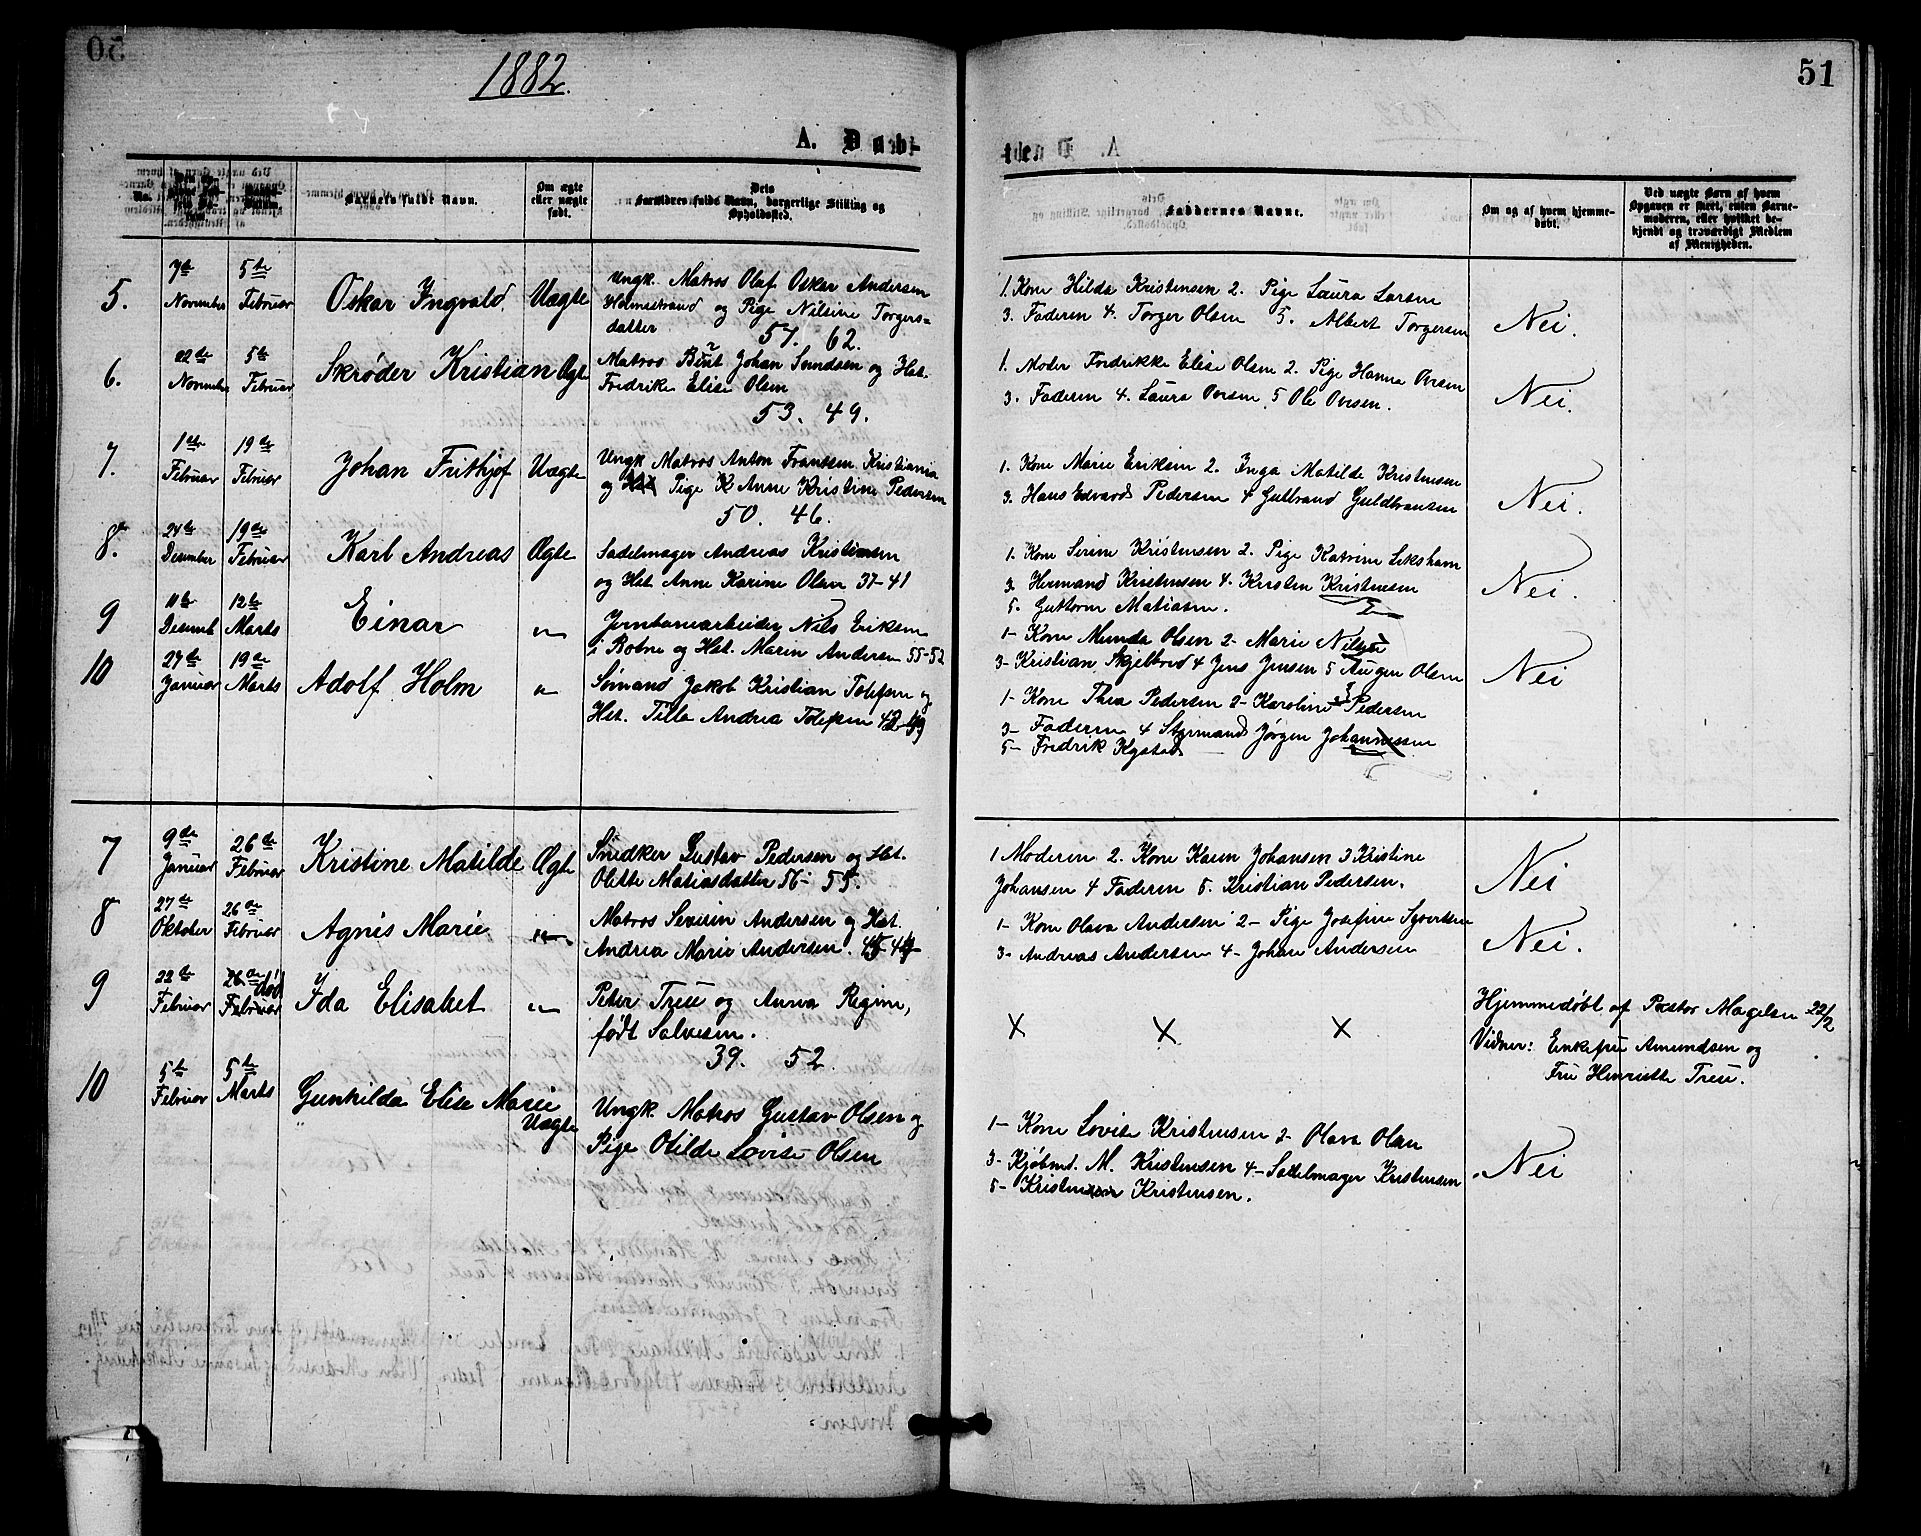 1882.
51
A. Døbte
No.
Barnets fulde Navn.
Om ægte eller uægte født.
Forældres fulde Navn, borgerlige Stilling og Opholdssted.
Faddernes Navne.
Om og af hvem hjemmedøbt.
Ved uægte Barn af hvem Opgaven er skeet, enten Barnemoderen, eller hvilket bekjendt og troværdigt Medlem af Menigheden.
5. 7de November 5te Februar Oskar Ingvald. Uægte
Ungk. Matros Olaf Oskar Andersen
Holmestrand og Pige Nilsine Torgers-
datter 57. 62.
1. Kone Hilda Kristensen 2. Pige Laura Larsen
3. Faderen 4. Torger Olsen 5. Albert Torgersen
Nei.
6. 22de November 5te Februar Skrøder Kristian Ægte
Matros Johan Svendsen og Hst.
Fredrik Elise Olsen
53. 49.
1. Moder Fredrikke Elise Olsen 2. Pige Hanna Oversen
3. Faderen 4. Laura Oversen 5 Ole Oversen.
Nei.
7. 1ste Februar 19de Februar Johan Frithjof Uægte
Ungk Matros Anton Frantsen Kristiania
og Pige K Anne Kristine Pedersen
50. 46.
1. Kone Marie Eriksen 2. Inga Matilde Kristensen
3. Hans Edvard Pedersen 4 Gulbrand Guldbransen
Nei.
8. 24de Desember 19de Februar Karl Andreas Ægte
Sadelmager Andreas Kristensen
og Hst. Anne Karine Olava 37-41
1. Kone Serine Kristensen 2. Pige Katrine
3. Hermand Kristensen 4. Kristen Kristensen
5. Guttorm Matiasen.
Nei.
9 11te Desemb 12te Marts Einar "
Jernbanearbeider Nils Eriksen
i Botne og Hst. Maren Andersen 55-52
1- Kone Munda Olsen 2- Marie Nilsen
3- Kristian Skjelbred 4 Jens Jensen 5 Augen Olsen
Nei
10 27de Januar 19de Marts Adolf Holm "
Sømand Jakob Kristian Tolefsen og
Hst. Tilla Andrea Tolefsen 42 49
1- Kone Thea Pedersen 2- Karoline Pedersen
3- Faderen 4 Styrmand Jørgen Johannessen
5- Fredrik
7 9de Januar 26de Februar Kristine Matilde Ægte
Snedker Gustav Pedersen og Hst.
Olette Matiasdatter 56- 55.
1 Moderen 2. Kone Karen Johansen 3 Kristine
Johansen 4 Faderen 5. Kristian Pedersen.
Nei
8 27de Oktober 26de Februar Agnis Marie "
Matros Severin Andersen og Hst.
Andrea Marie Andersen.
1- Kone Olava Andersen 2- Pige Josefine Syvertsen
3- Andreas Andersen 4- Johan Andersen
Nei.
9 22de Februar 26de Februar død Ida Elisabet "
Peter Treu og Anna Regine,
født Salvesen.
39. 52.
X X X
Hjemmedøbt af Pastor Magelsen 22/2
Vidner: Enkefru Amundsen og
Fru Henriette Treu.
10 5te Februar 5te Marts Gunhilda Elise Marie Uægte
Ungk. Matros Gustav Olsen og
Pige Otilde Lovise Olsen
1- Kone Lovise Kristensen 2- Olava Olsen
3- Kjøbmd. M. Kristensen 4- Sadelmager Kristensen
5- Kristensen.
Nei